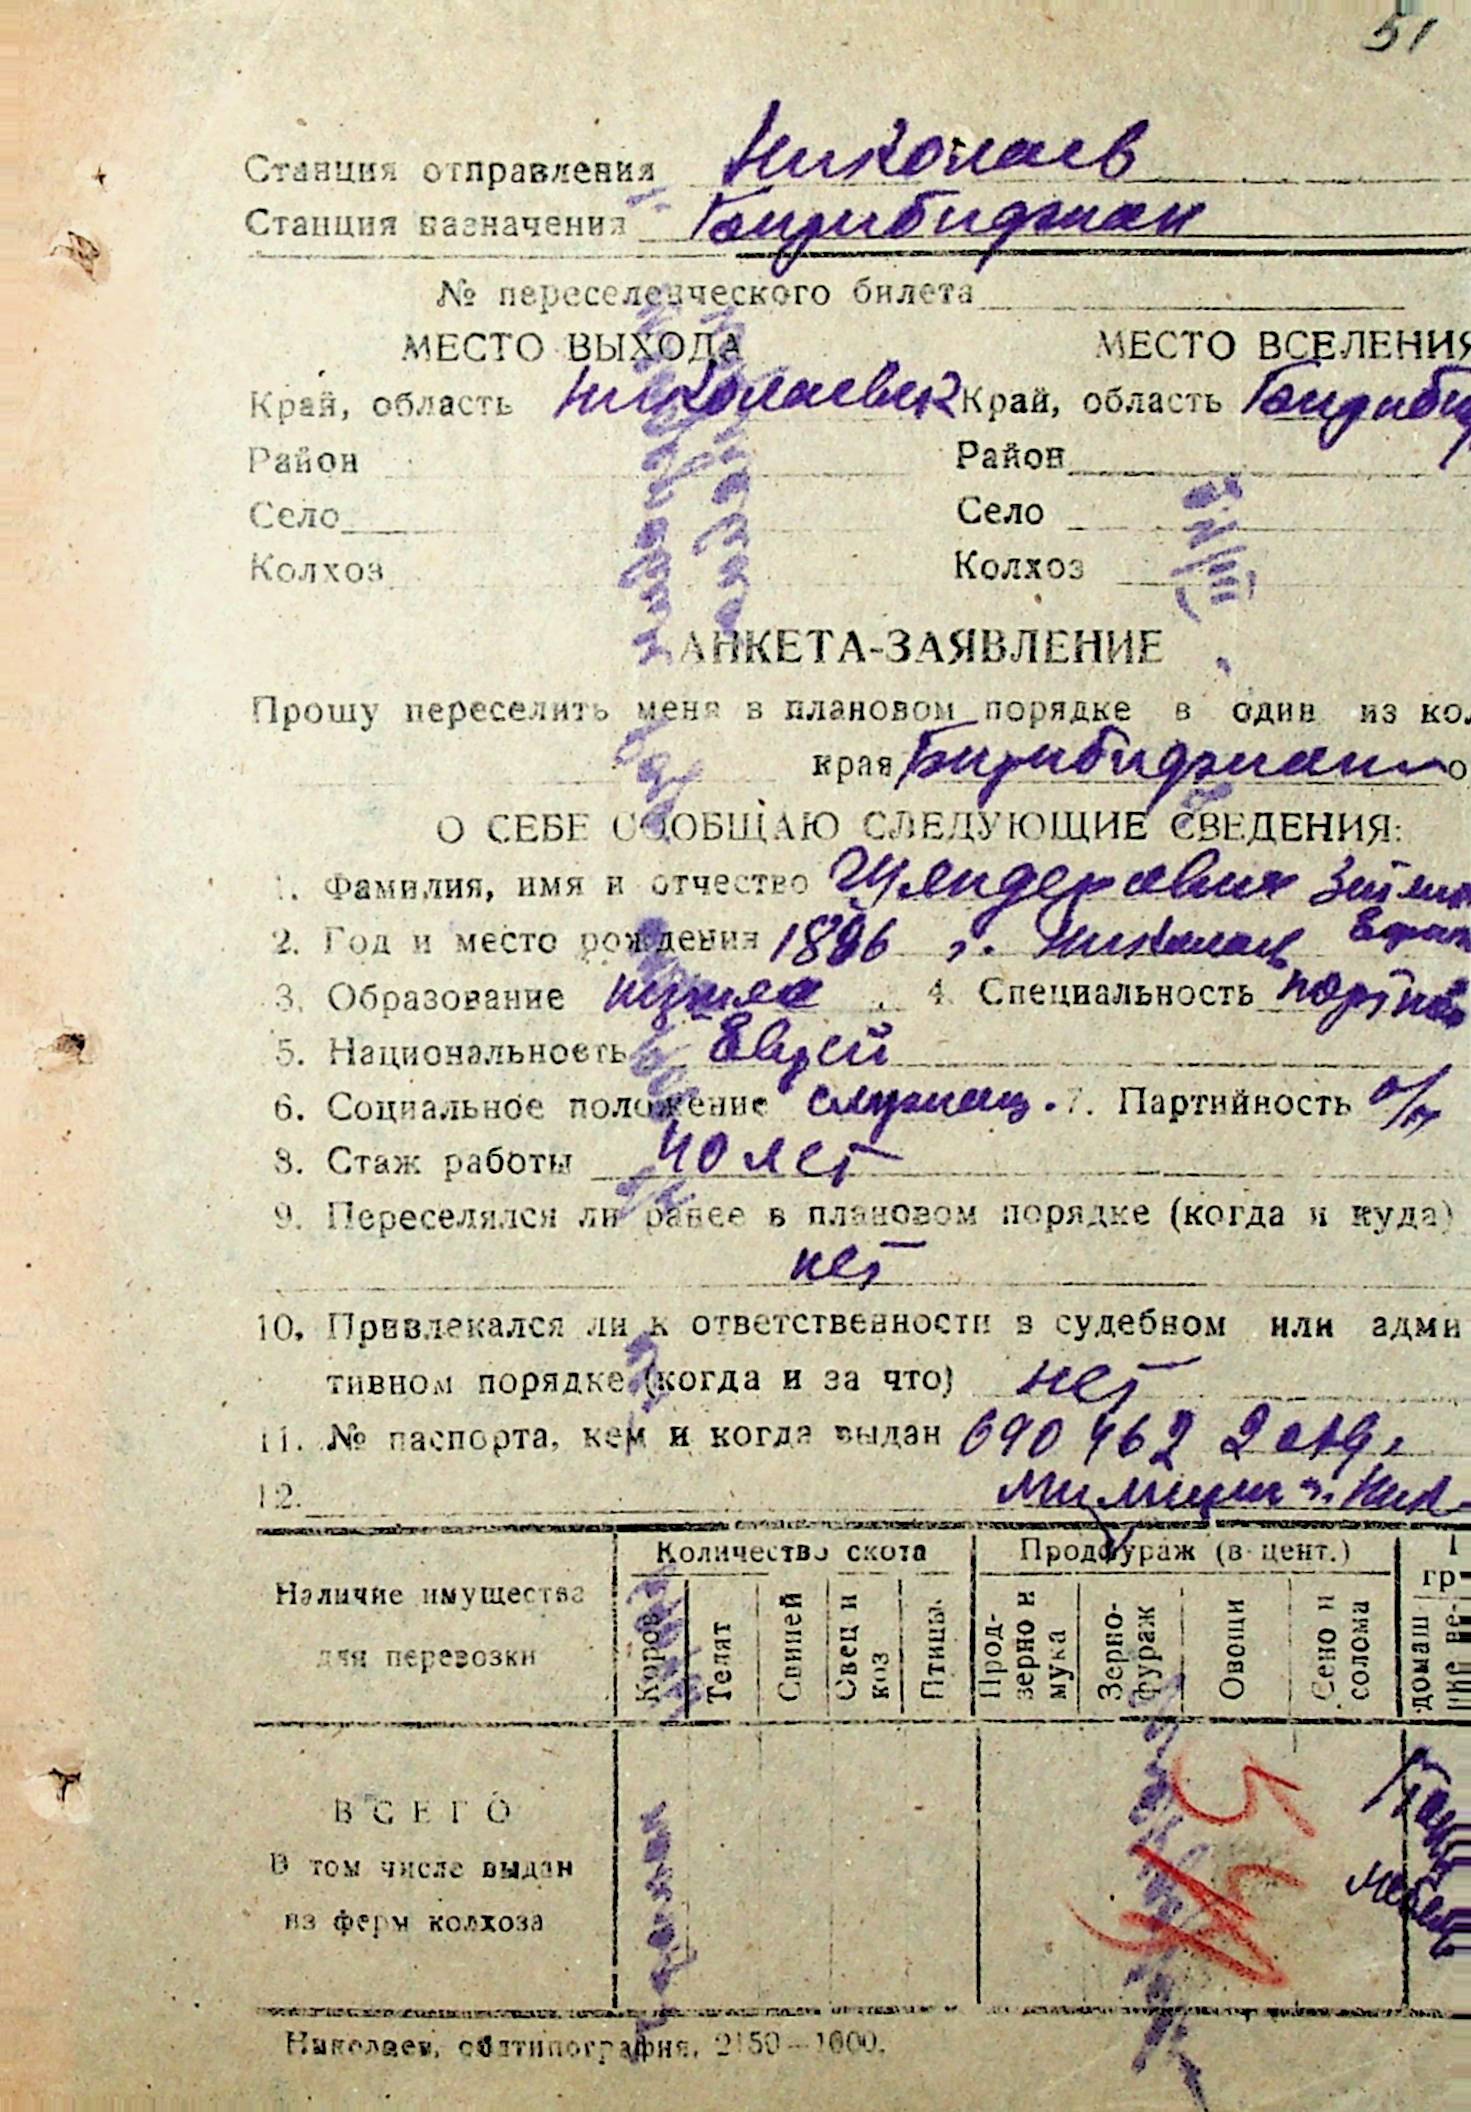 51
Станция отправления Николаев
Станция назначения Биробиджан
№ переселенческого билета
МЕСТО ВЫХОДА МЕСТО ВСЕЛЕНИЯ
Край, область Николаевск Край, область Биробид
Район Район
Село Село
Колхоз Колхоз
АНКЕТА-ЗАЯВЛЕНИЕ
Прошу переселить меня в плановом порядке в один из кол
края Биробиджан о
О СЕБЕ СООБЩАЮ СЛЕДУЮЩИЕ СВЕДЕНИЯ:
1. Фамилия, имя и отчество
2. Год и место рождения г. Николаев
3. Образование низшее 4. Специальность портной
5. Национальность Еврей
6. Социальное положение служащ. 7. Партийность б/п
8. Стаж работы 40 лет
9. Переселялся ли ранее в плановом порядке (когда и куда)
нет
10. Привлекался ли к ответственности в судебном или адми
тивном порядке (когда и за что) нет
11. № паспорта, кем и когда выдан 690462 2 отд.
12. Милиции г. Ник.
Наличие имущества для перевозки
Количество скота
Продфураж (в цент.)
гр
Коров
Телят
Свиней
Овец и коз
Птицы
Прод-зерно и мука
Зерно-фураж
Овощи
Сено и солома
домаш
ВСЕГО
В том числе выдан
из ферм колхоза
мебель
Николаев, облтипография, 2150—1000.